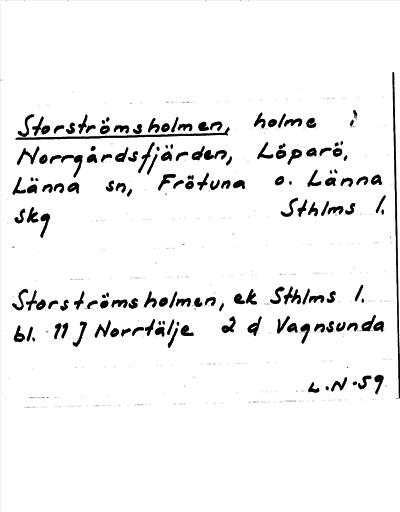 Storströmsholmen, holme i
Norrgårdsfjärden, Löparö,
Länna sn, Frötuna o. Länna
skg Sthlms l.
Storströmsholmen, ek Sthlms l.
bl. 11 J Norrtälje 2 d Vagnsunda
L.N-59